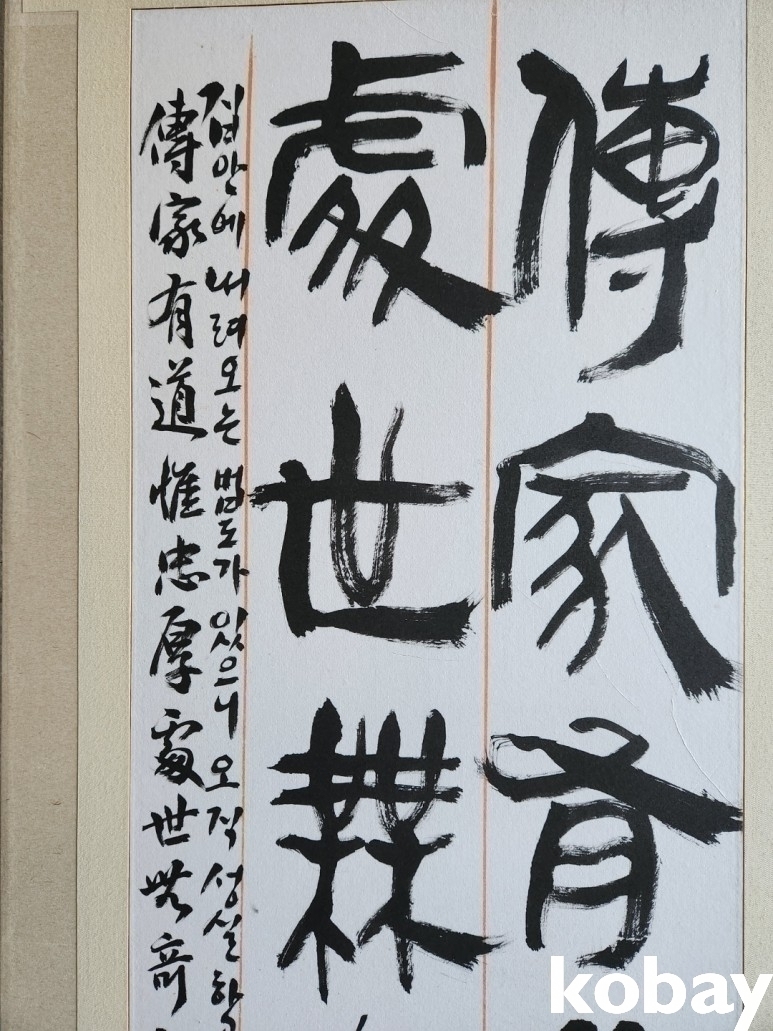 傳家有
處世無
집안에 내려오는 법도가 있으니 오직 성실하
傳家有道惟忠厚處世無奇
kobay